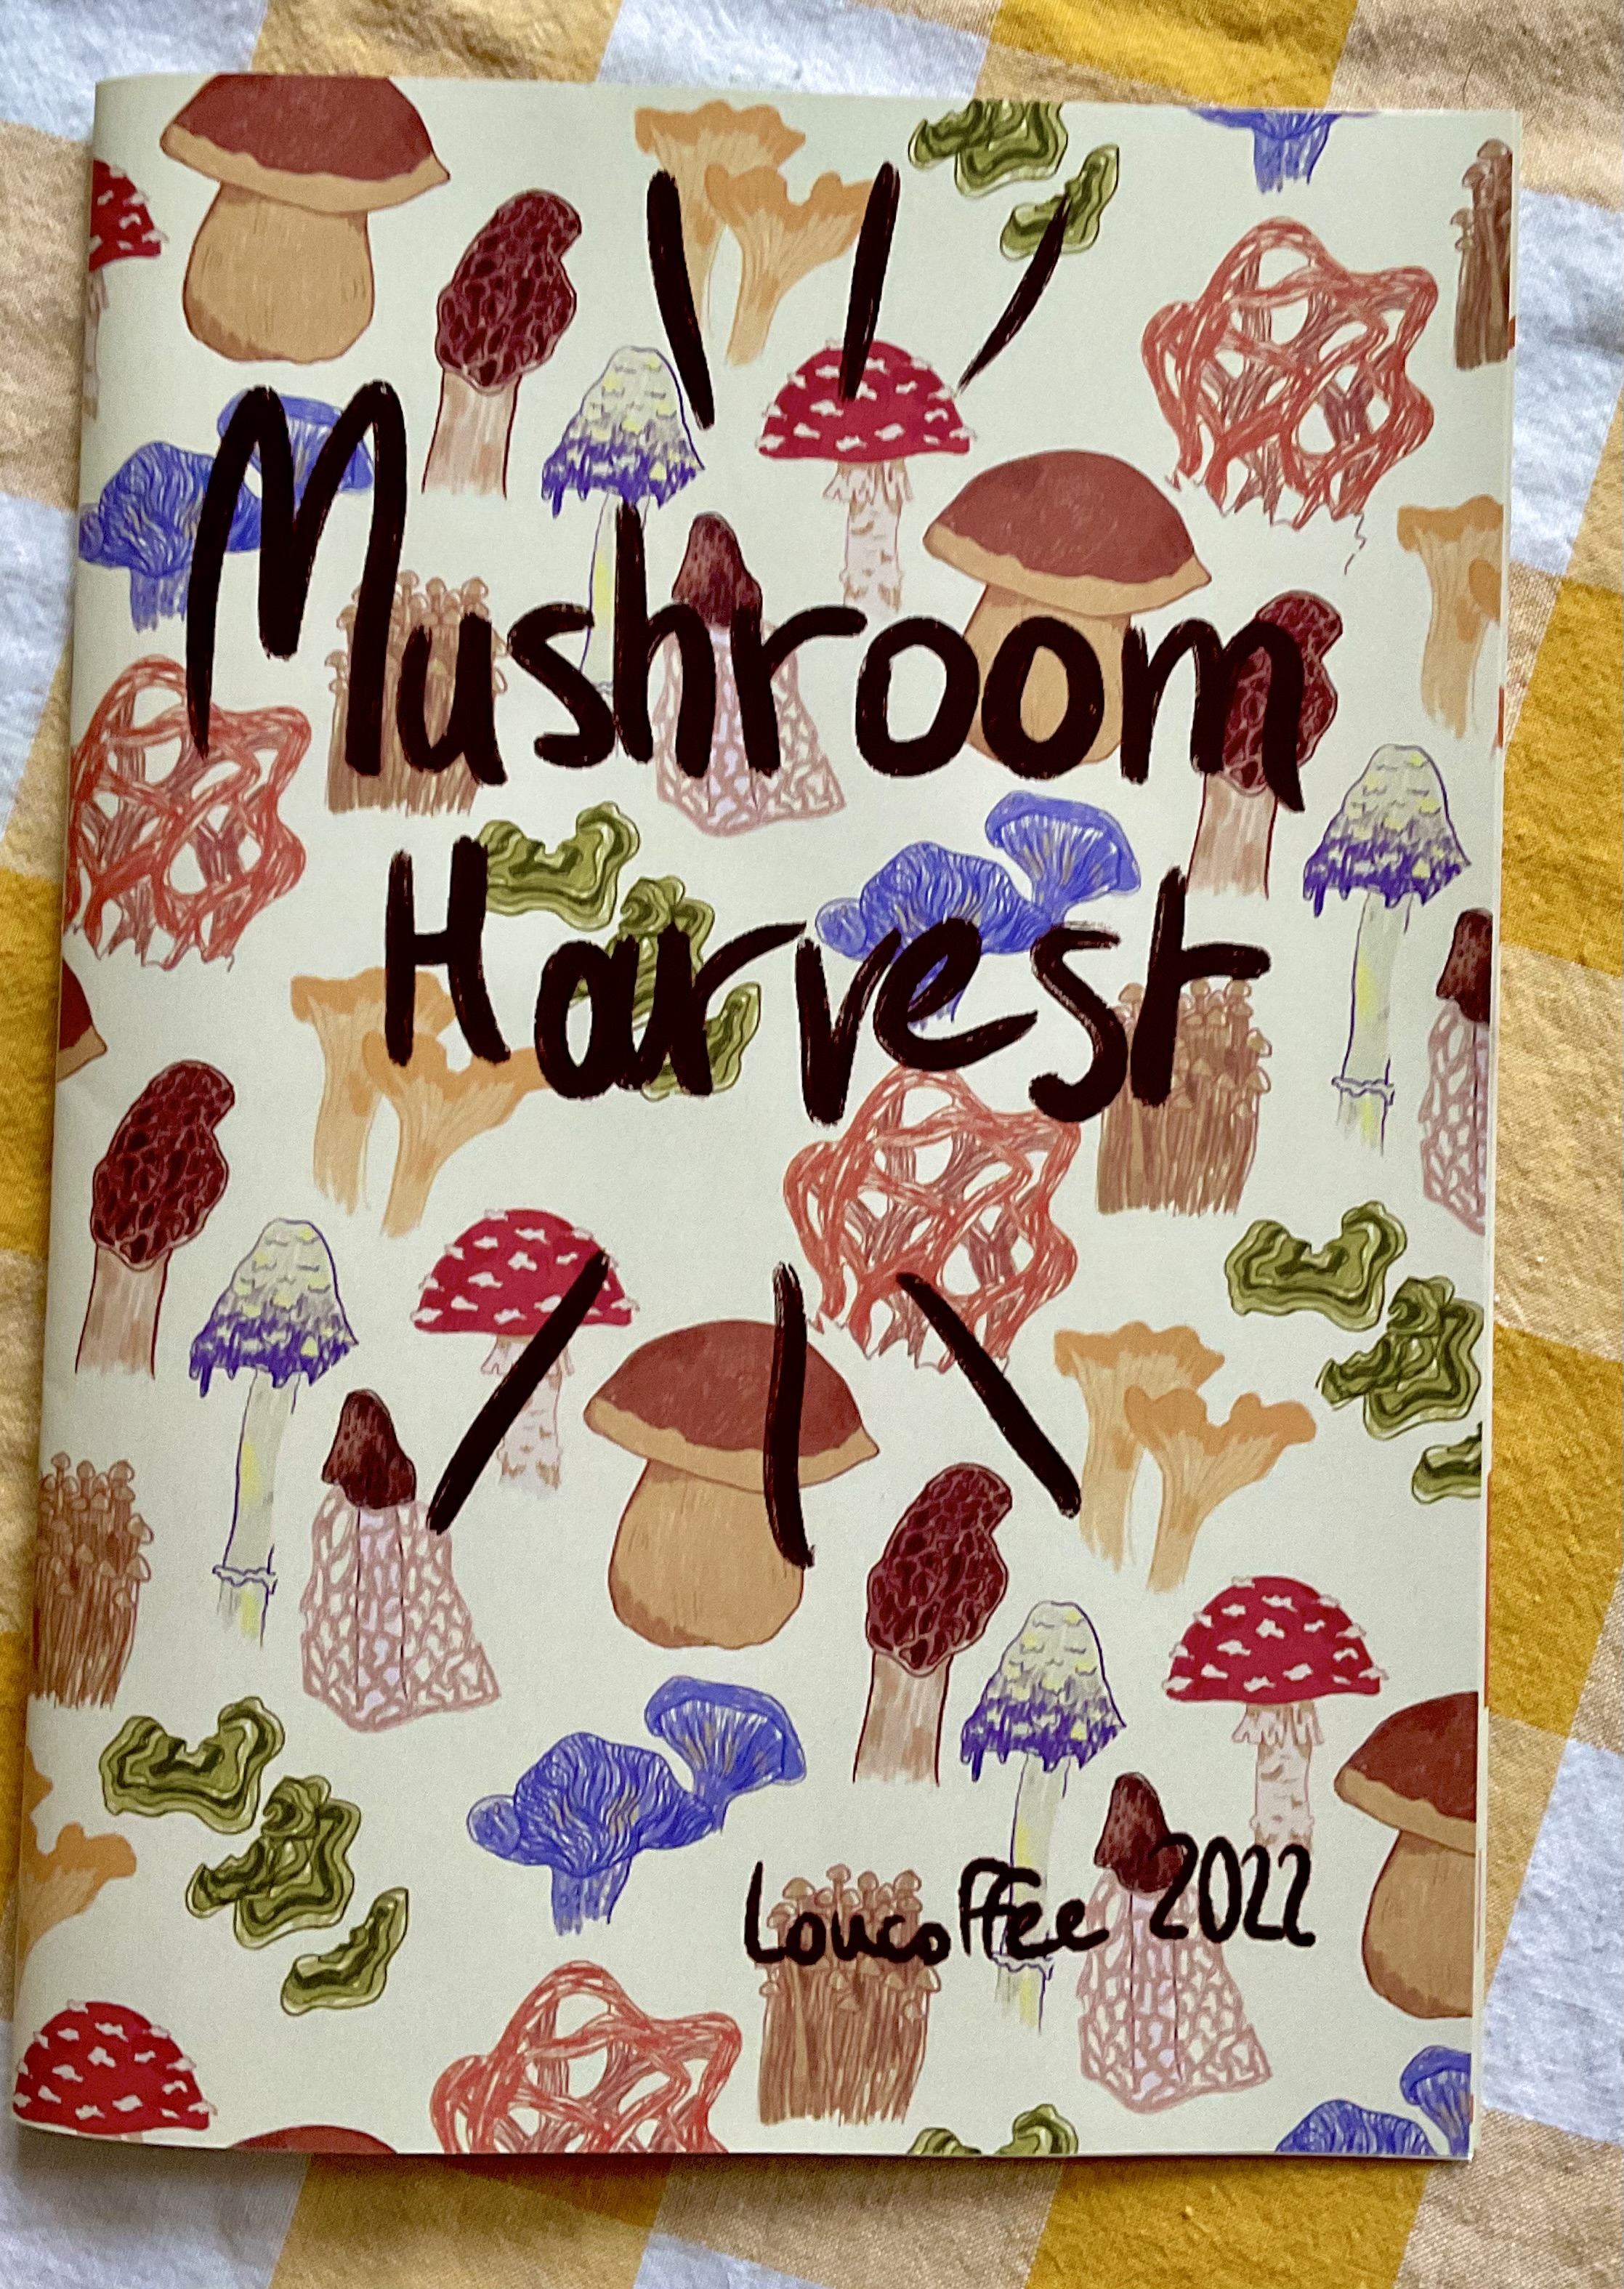 Mushroom
Harvest
Loucoffee 2022